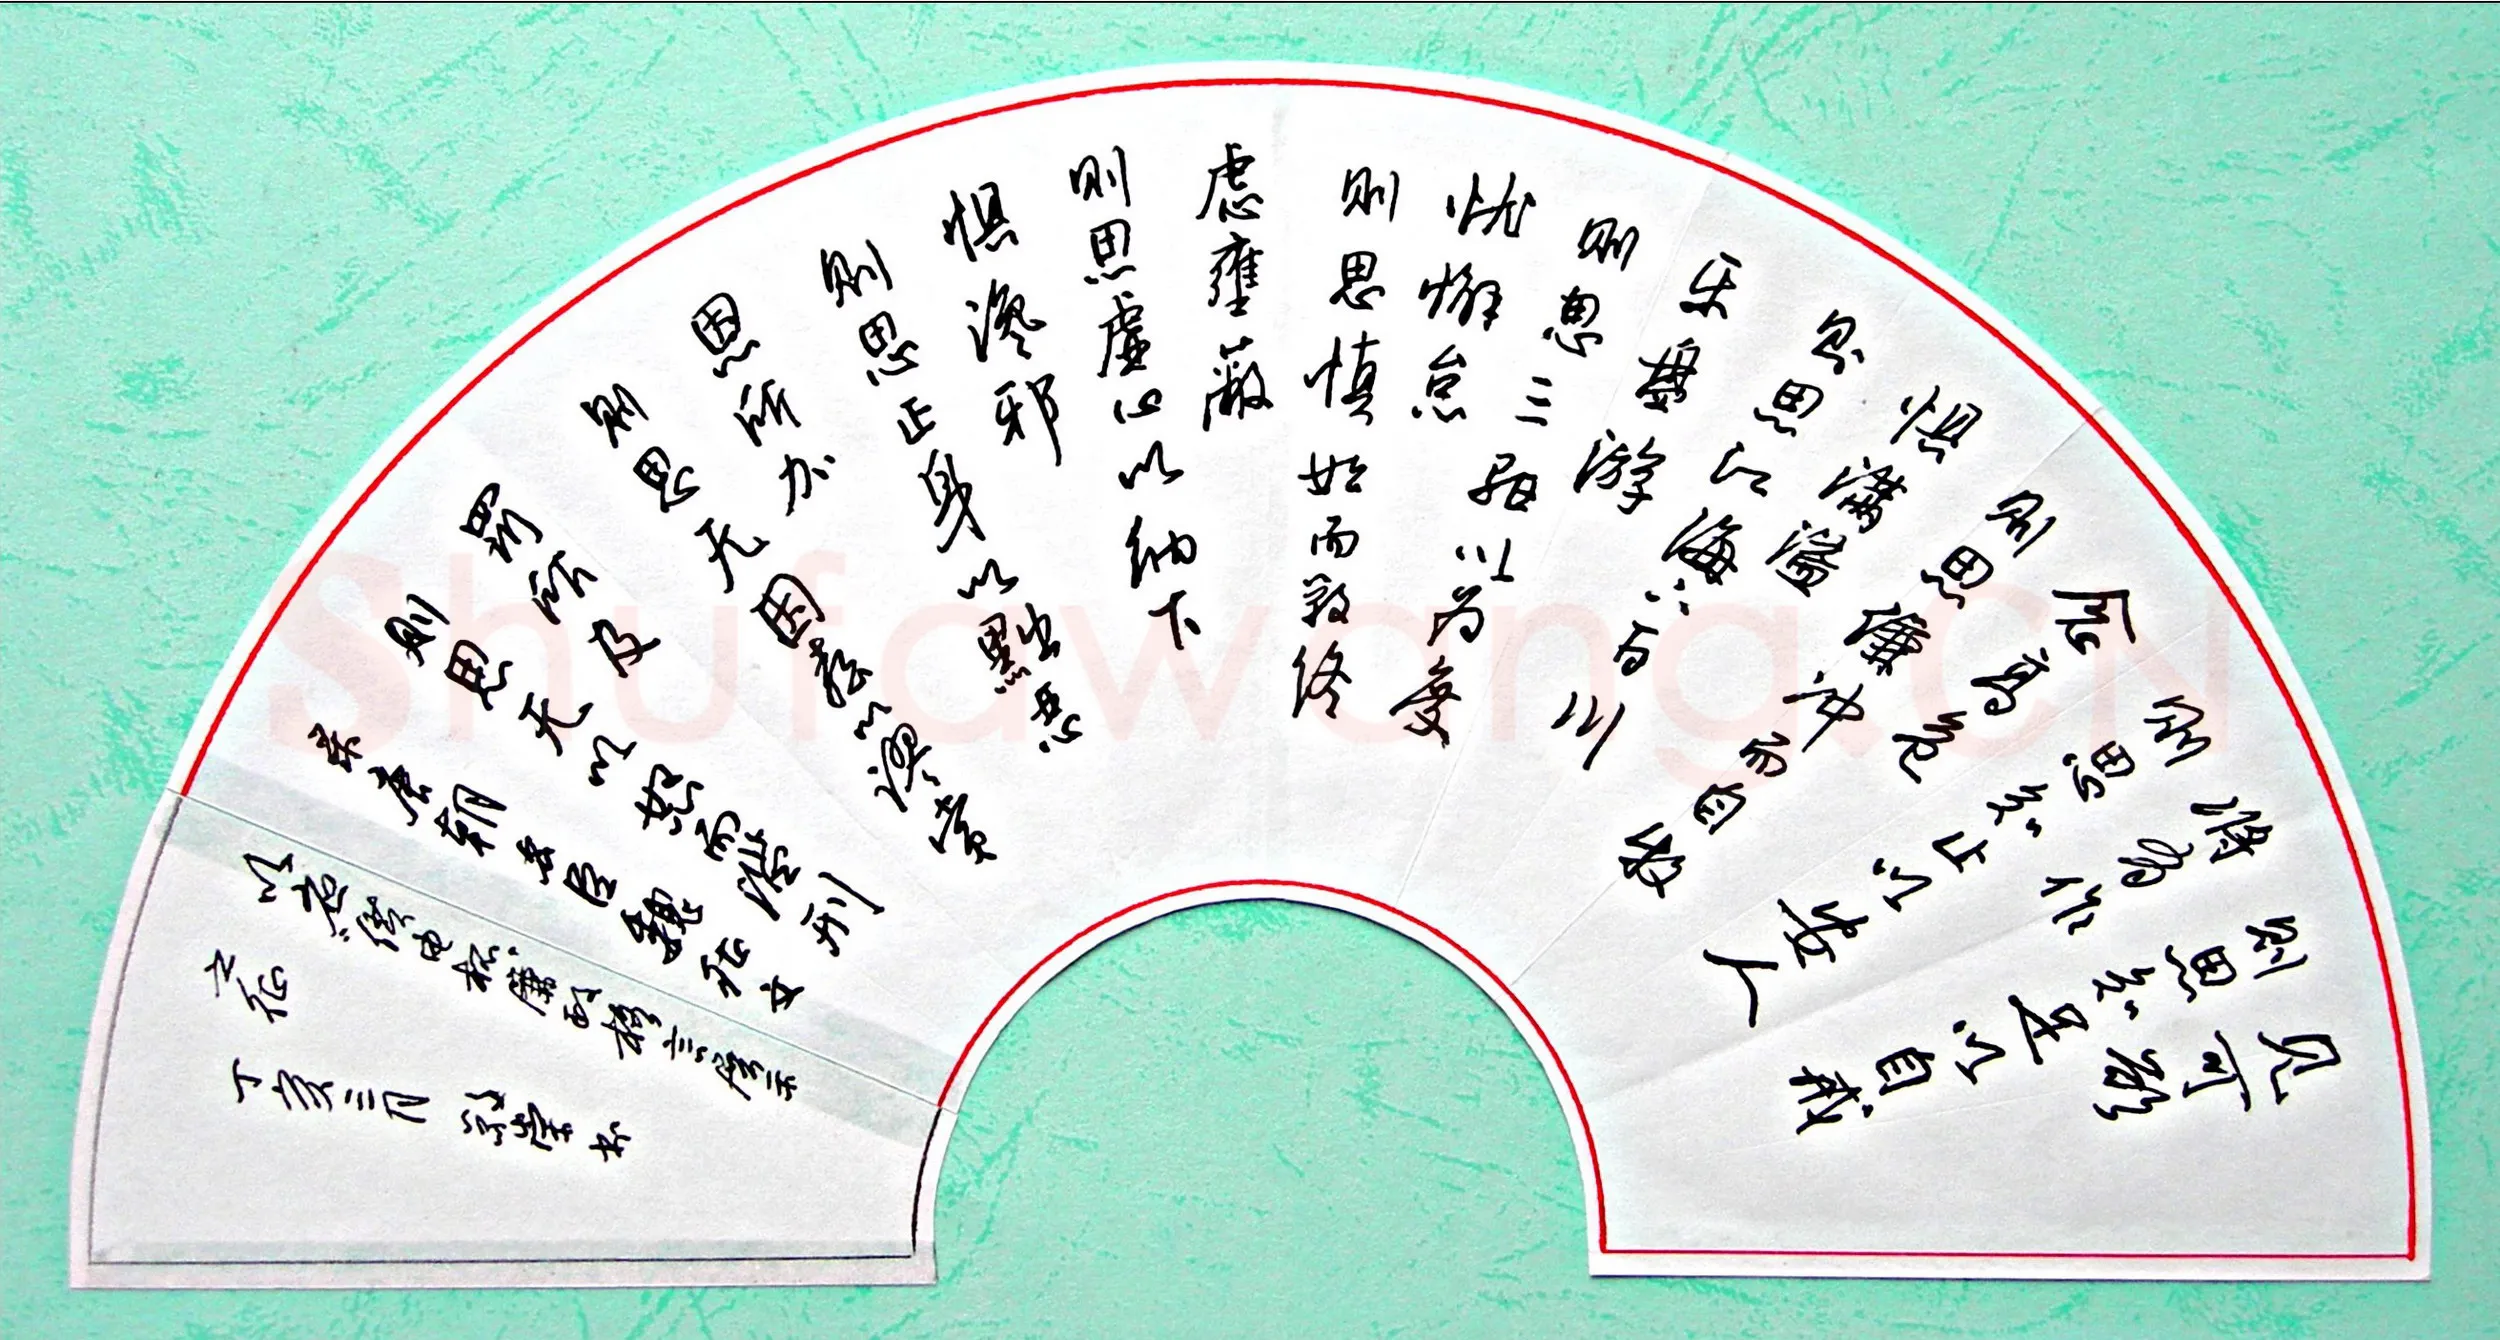 见可欲
则思知足以自戒
将有作
则思知止以安人
念高危
则思谦冲而自牧
惧满溢
则思江海下百川
乐盘游
则思三驱以为度
忧懈怠
则思慎始而敬终
虑壅蔽
则思虚心以纳下
惧谗邪
则思正身以黜恶
恩所加
则思无因喜以谬赏
罚所及
则思无以怒而滥刑
录唐朝名臣魏征文
之征
丁亥三月 书
Shufawang.CN